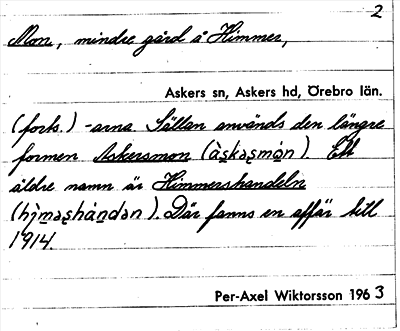 2
Mon, mindre gård å Himmer,
Askers sn, Askers hd, Örebro län.
(forts.) -arna. Sällan används den längre
formen Askersmon (àʂkəʂmọ̀n). Ett
äldre namn är Himmershandeln
(hìməʂhàṇdən). Där fanns en affär till
1914.
Per-Axel Wiktorsson 1963